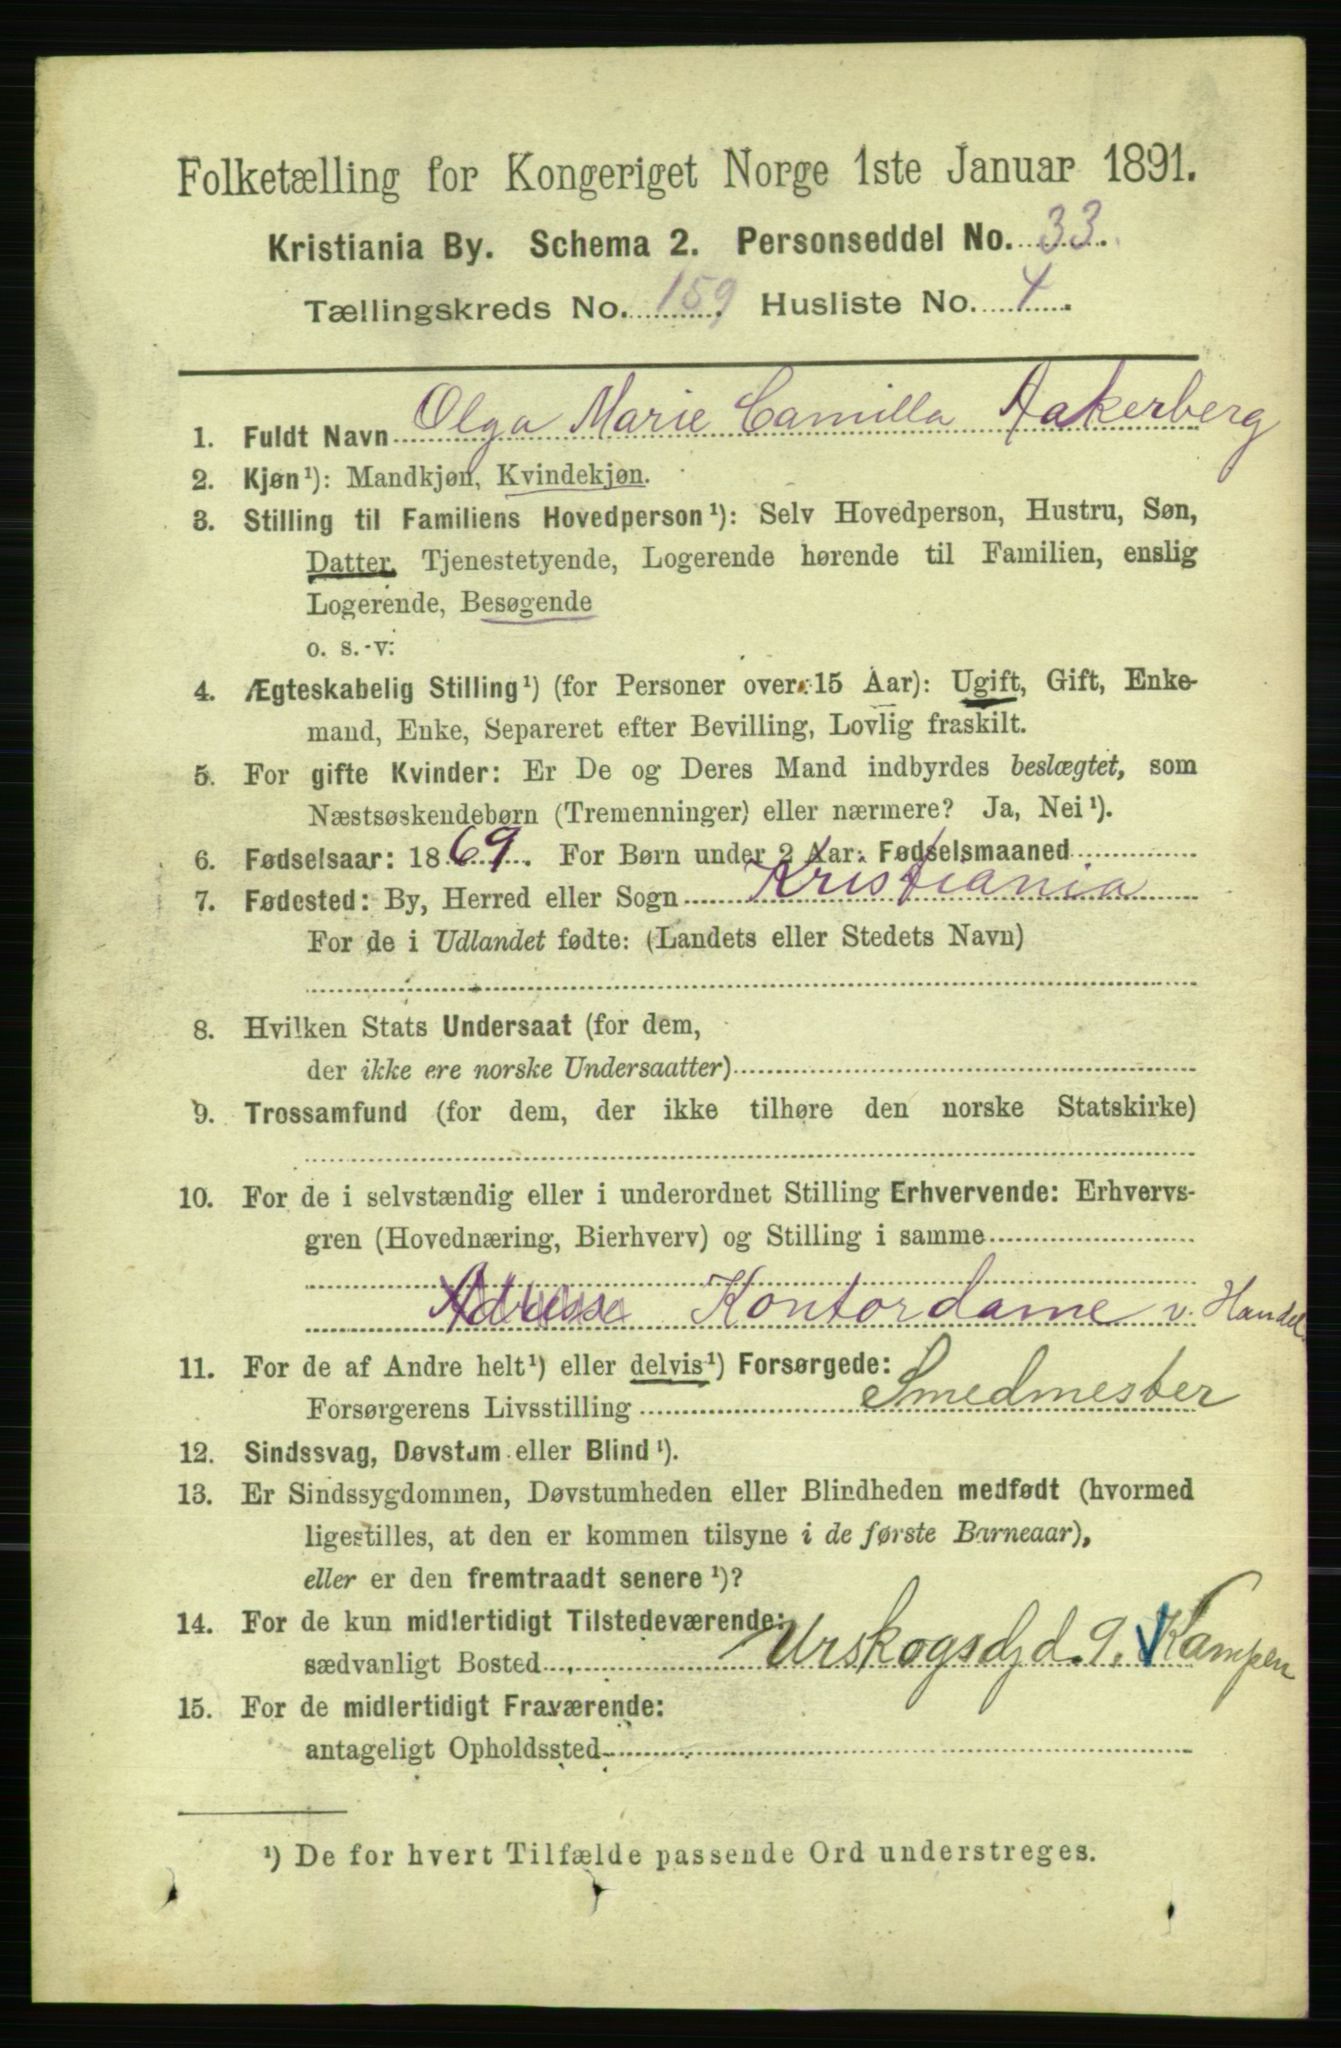 Folketælling for Kongeriget Norge 1ste Januar 1891.
Kristiania By. Schema 2. Personseddel No. 33.
Tællingskreds No. 159. Husliste No. 4.
1. Fuldt Navn Olga Marie Camilla Aakerberg
2. Kjøn¹): Mandkjøn, Kvindekjøn.
3. Stilling til Familiens Hovedperson¹): Selv Hovedperson, Hustru, Søn,
Datter, Tjenestetyende, Logerende hørende til Familien, enslig
Logerende, Besøgende
o. s. v:
4. Ægteskabelig Stilling¹) (for Personer over 15 Aar): Ugift, Gift, Enke-
mand, Enke, Separeret efter Bevilling, Lovlig fraskilt.
5. For gifte Kvinder: Er De og Deres Mand indbyrdes beslægtet, som
Næstsøskendebørn (Tremenninger) eller nærmere? Ja, Nei¹).
6. Fødselsaar: 1869. For Børn under 2 Aar: Fødselsmaaned
7. Fødested: By, Herred eller Sogn Kristiania
For de i Udlandet fødte: (Landets eller Stedets Navn)
8. Hvilken Stats Undersaat (for dem,
der ikke ere norske Undersaatter)
9. Trossamfund (for dem, der ikke tilhøre den norske Statskirke)
10. For de i selvstændig eller i underordnet Stilling Erhvervende: Erhvervs-
gren (Hovednæring, Bierhverv) og Stilling i samme
Adresse Kontordame v. Handel
11. For de af Andre helt¹) eller delvis¹) Forsørgede:
Forsørgerens Livsstilling Smedmester
12. Sindssvag, Døvstum eller Blind¹).
13. Er Sindssygdommen, Døvstumheden eller Blindheden medfødt (hvormed
ligestilles, at den er kommen tilsyne i de første Barneaar),
eller er den fremtraadt senere¹)?
14. For de kun midlertidigt Tilstedeværende:
sædvanligt Bosted Urskogsgd. 9. Kampen
15. For de midlertidigt Fraværende:
antageligt Opholdssted
¹) De for hvert Tilfælde passende Ord understreges.